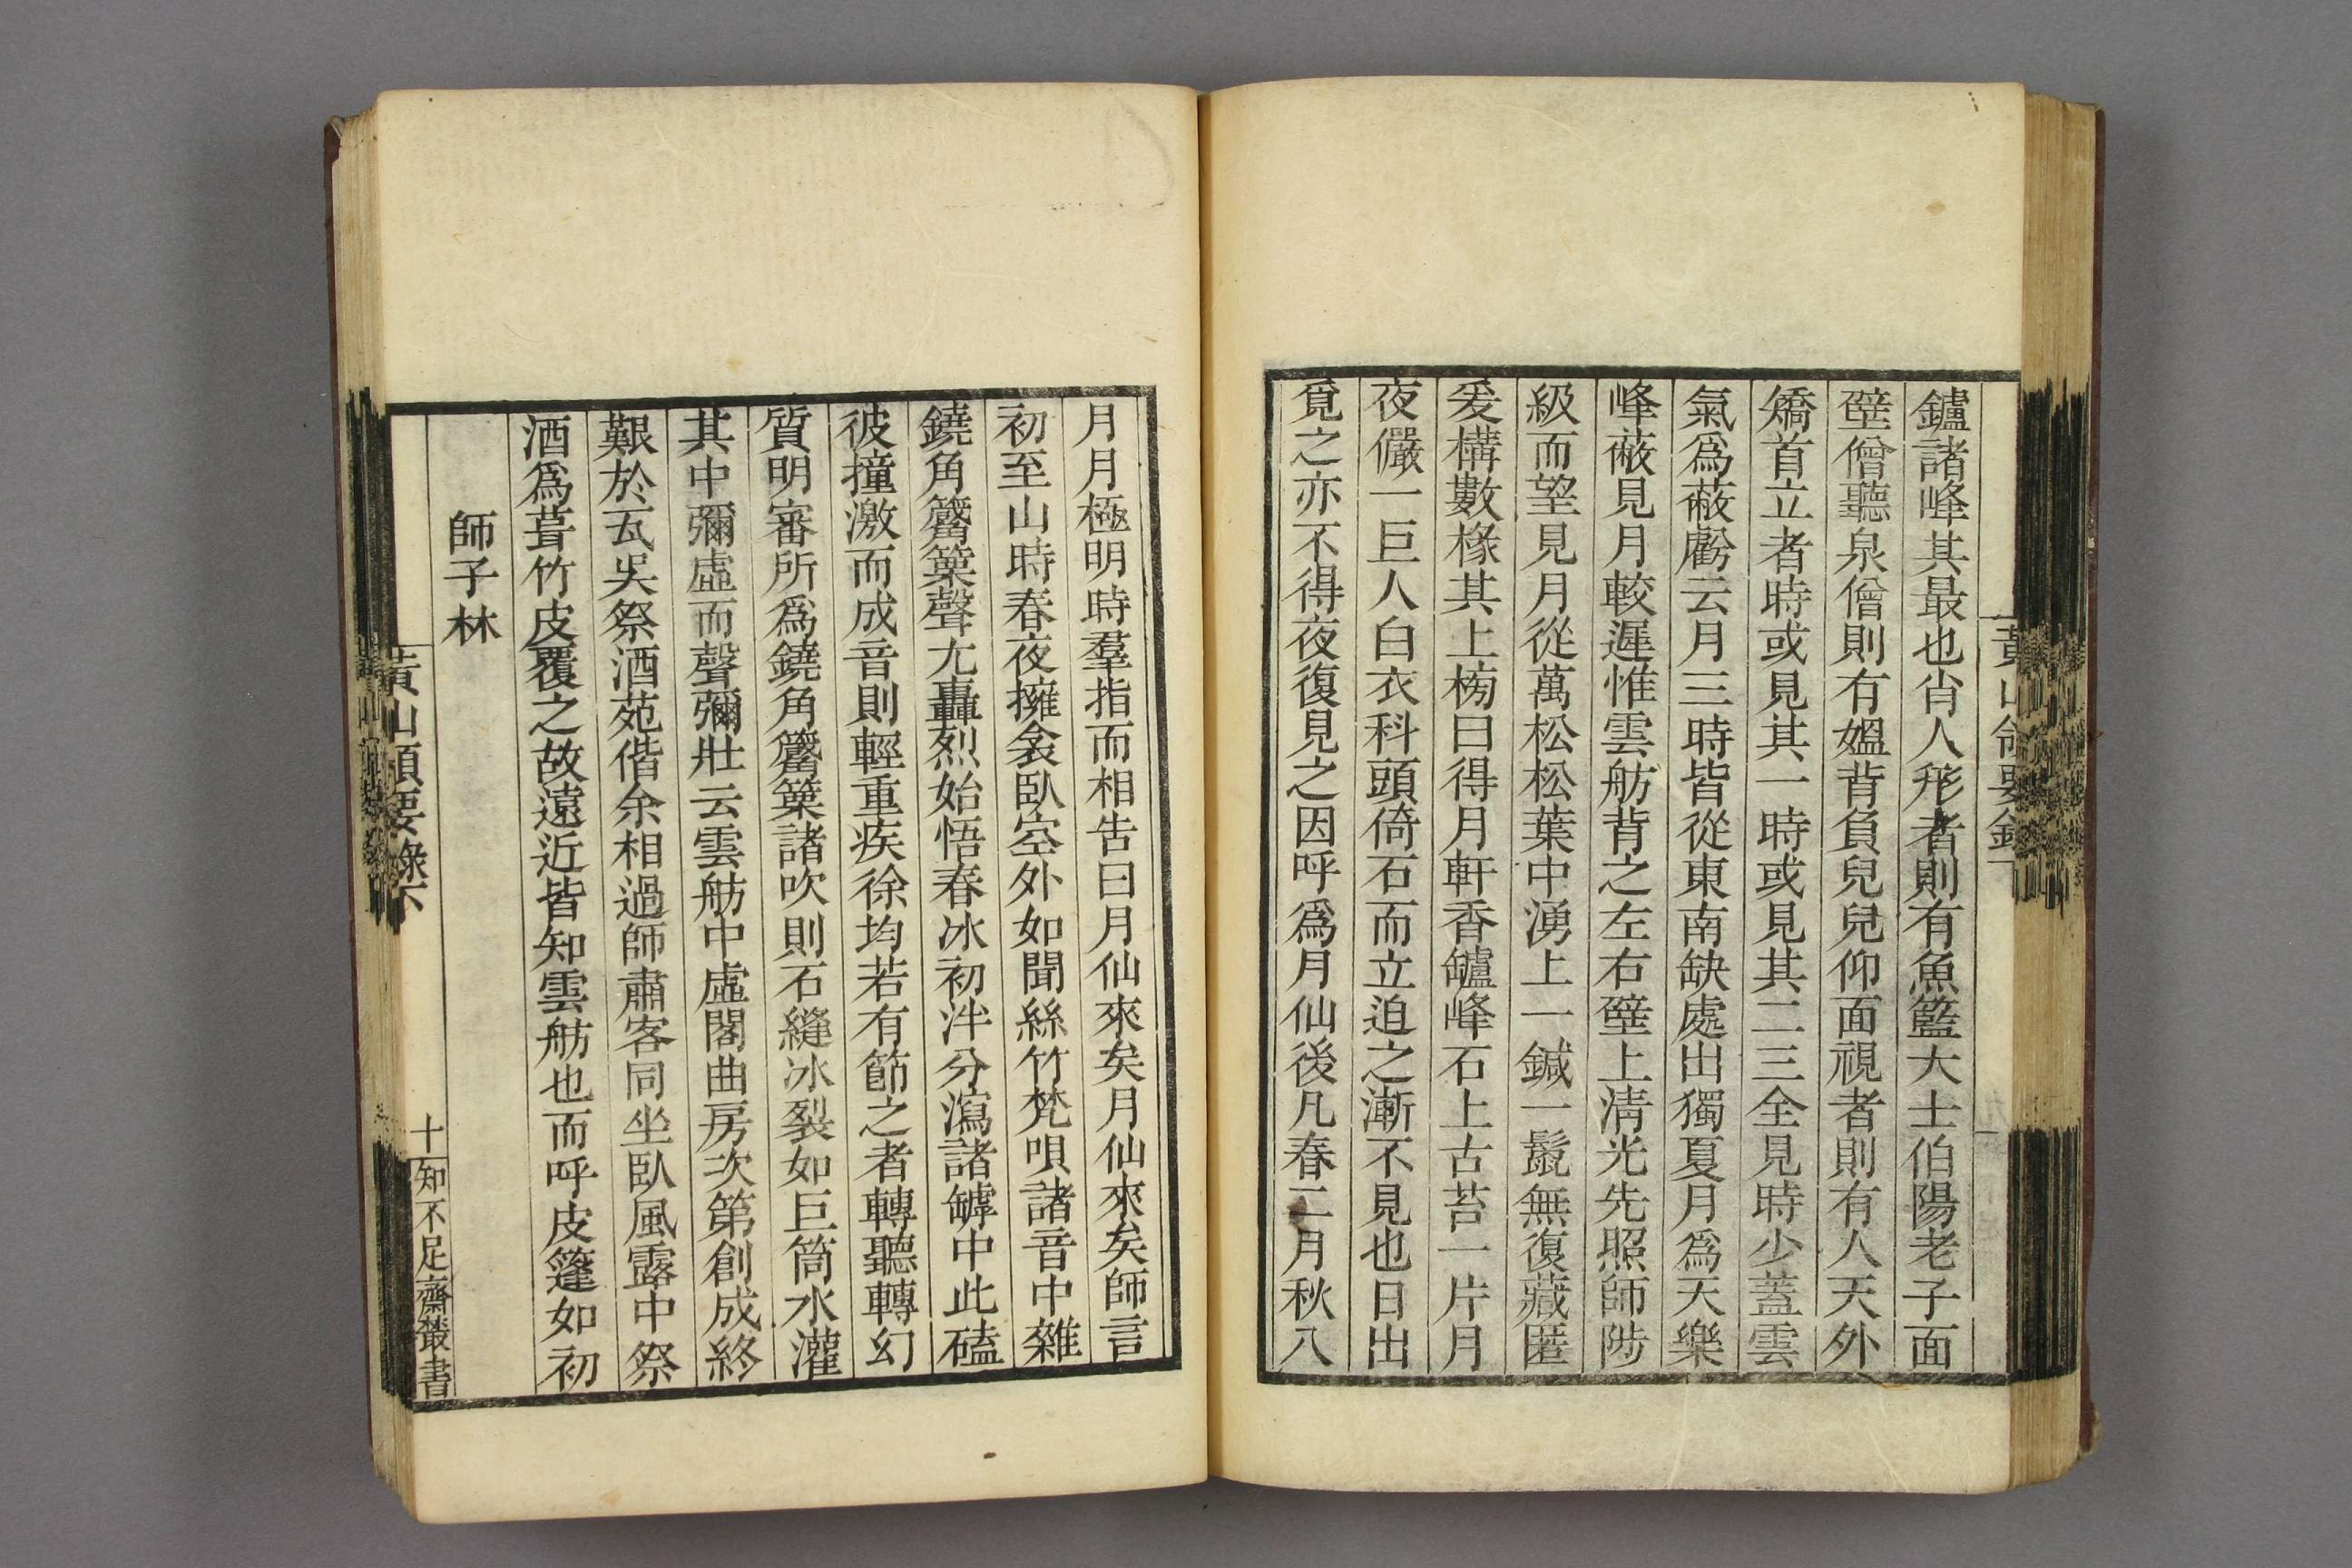 黃山領要錄下
鑪諸峰其最也肖人形者則有魚籃大士伯陽老子面
壁僧聽泉僧則有媼背負兒兒仰面視者則有人天外
矯首立者時或見其一時或見其二三全見時少蓋雲
氣爲蔽虧云月三時皆從東南缺處出獨夏月爲天樂
峰蔽見月較遲惟雲舫背之左右壁上清光先照師陟
級而望見月從萬松松葉中湧上一鍼一鬆無復藏匿
爰構數椽其上榜曰得月軒香罏峰石上古苔一片月
夜儼一巨人白衣科頭倚石而立迫之漸不見也日出
覓之亦不得夜復見之因呼爲月仙後凡春二月秋八
月月極明時羣指而相告曰月仙來矣月仙來矣師言
初至山時春夜擁衾臥空外如聞絲竹梵唄諸音中雜
鐃角觱篥聲尤轟烈始悟春冰初泮分瀉諸罅中此磕
彼撞激而成音則輕重疾徐均若有節之者轉聽轉幻
質明審所爲鐃角觱篥諸吹則石縫冰裂如巨筒水灌
其中彌虛而聲彌壯云雲舫中虛閣曲房次第創成終
艱於瓦吳祭酒苑偕余相過師肅客同坐臥風露中祭
酒爲葺竹皮覆之故遠近皆知雲舫也而呼皮篷如初
師子林
黃山領要錄下
十
知不足齋叢書